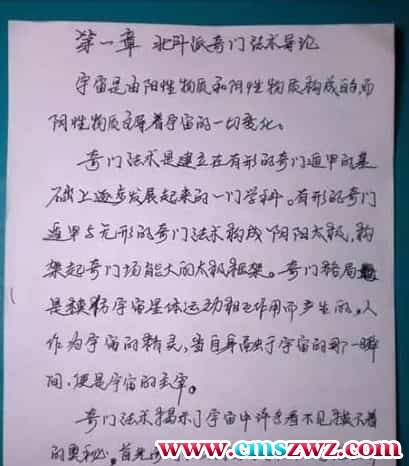 第一章 北斗派奇门法术导论
宇宙是由阳性物质和阴性物质构成的,而
阴性物质主导着宇宙的一切变化。
奇门法术是建立在有形的奇门遁甲的基
础上逐步发展起来的一门学科。有形的奇门
遁甲与无形的奇门法术构成阴阳太极,构
架起奇门场能大的太极框架。奇门格局
是模仿宇宙星体运动相互作用而产生的。人
作为宇宙的精灵,当自身融于宇宙的那一瞬
间,便是宇宙的主宰。
奇门法术揭示了宇宙中许多看不见摸不着
的奥秘。首先
www.cmszwz.com